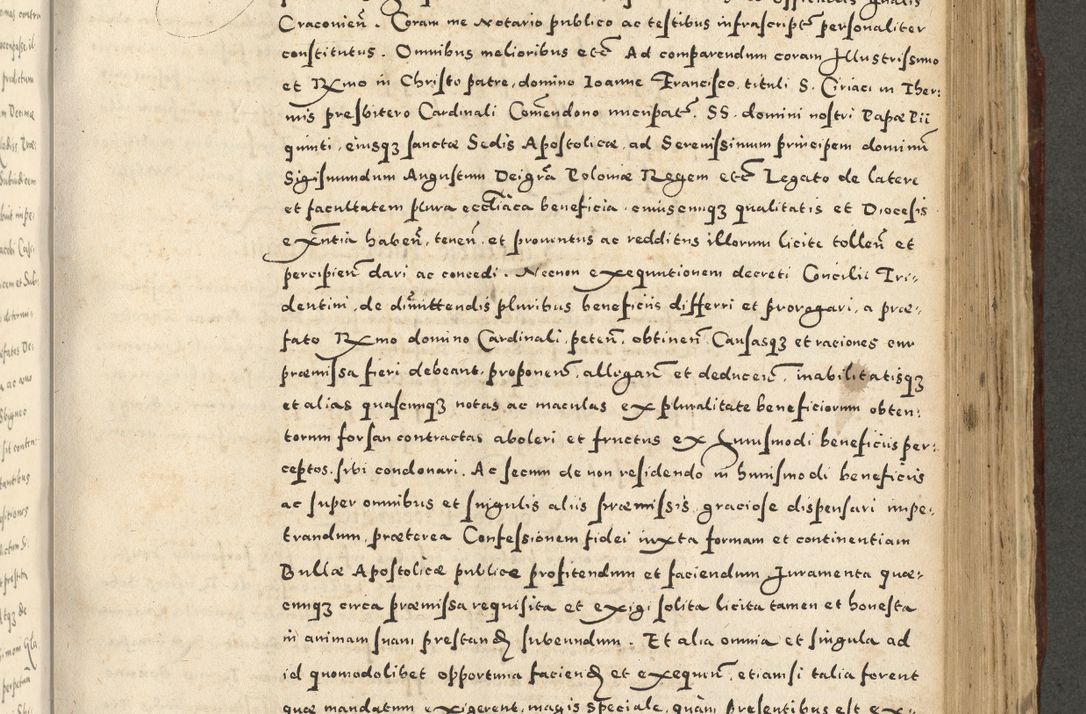 Craconien̄. Coram me Notario publico ac testibus infrascript̄ personaliter
constitutus. Omnibus melioribus etc̄ Ad comparendum coram Illustrissimo
et Rx̄mo in Christo patre, domino Ioanne Francisco, tituli S. Ciriaci in Ther:
mis presbitero Cardinali Com̄endono nuncupat̄. SS. domini nostri Papæ Pii
quinti, eiusqꝫ sanctæ Sedis Apostolicæ, ad Serenissimum principem dominū
Sigismundum Augustum Dei gr̄a Poloniæ Regem etc̄ Legato de latere
et facultatem plura eccl̄iāca beneficia cuiuscunqꝫ qualitatis et Diocesis
exn̄tia haben̄, tenen̄, et prouentus ac redditus illorum licite tollen̄ et
percipien̄ dari ac concedi. Necnon exequutionem decreti Concilii Tri-
dentini, de dimittendis pluribus beneficiis differri et prorogari, a præ-
fato Rx̄mo domino Cardinali, peten̄, obtinen̄ Causasqꝫ et raciones cur
præmissa fieri debeant, proponen̄, allegan̄ et deducen̄, inabilitatisqꝫ
et alias quascunqꝫ notas ac maculas ex pluralitate beneficiorum obten:
torum forsan contractas aboleri et fructus ex huiusmodi beneficiis per:
ceptos, sibi condonari. Ac secum de non residendo in huiusmodi beneficiis
ac super omnibus et singulis aliis præmissis, graciose dispensari impe:
trandum, præterea Confessionem fidei iuxta formam et continentiam
Bullæ Apostolicæ publice profitendum et faciendum Iuramenta quæ-
cunqꝫ circa præmissa requisita et exigi solita licita tamen et honesta
in animam suam prestandꝫ subeundum. Et alia omnia et singula ad
id quomodolibet opportuna faciendꝫ et exequen̄, etiamsi talia forent
quæ mandatum exigerent, magis speciale, quàm Presentibus est ex-